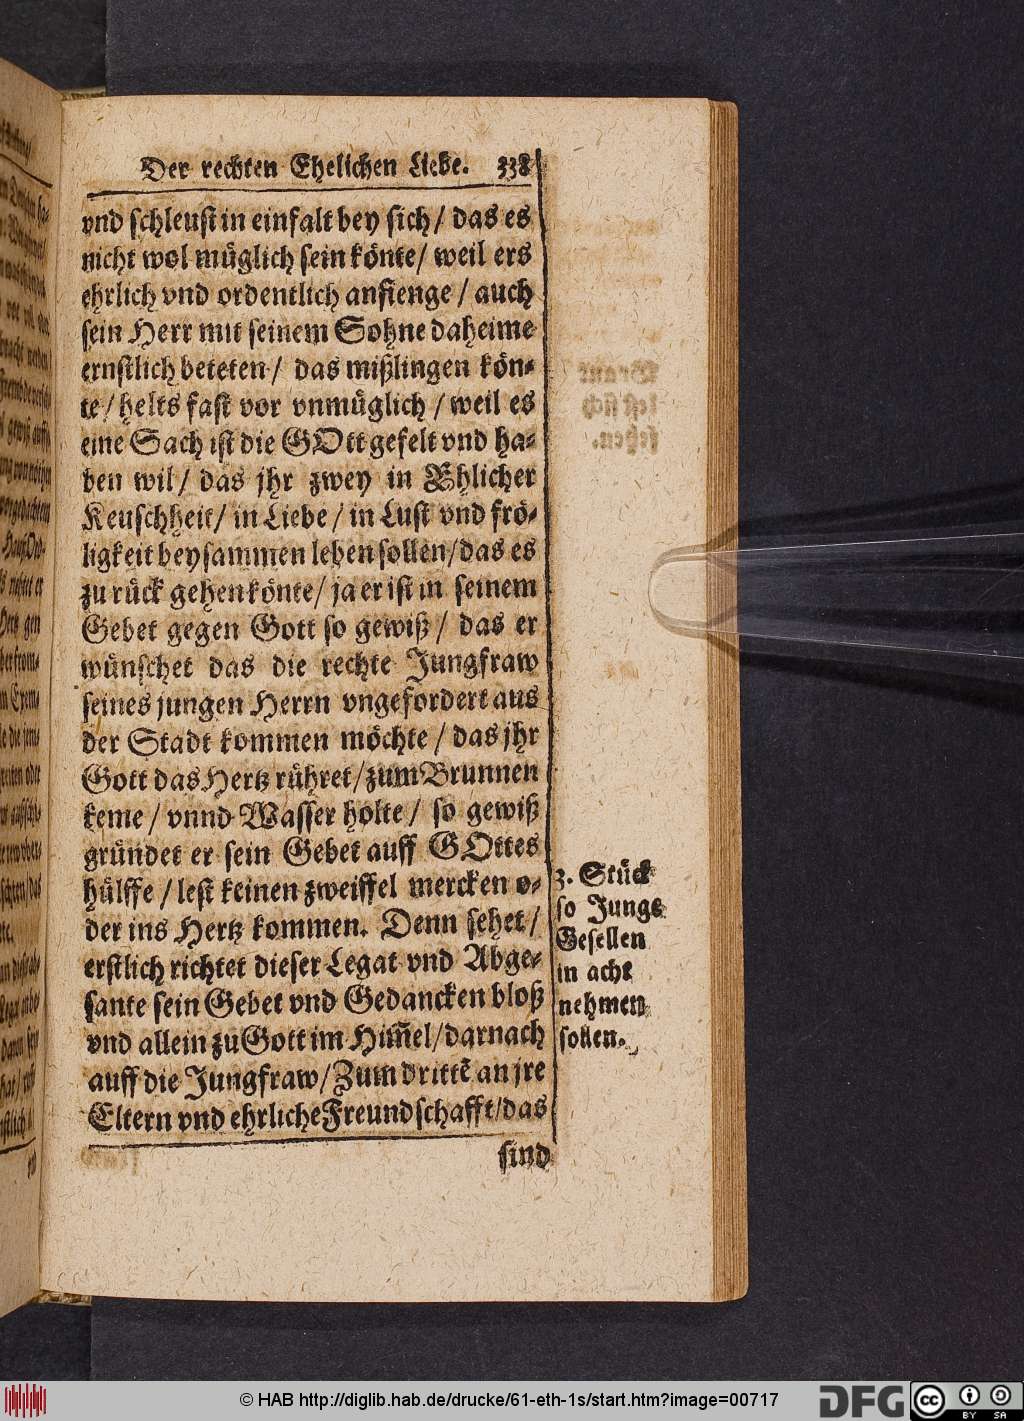 Der rechten Ehelichen Liebe. 338
vnd schleust in einfalt bey sich / das es
nicht wol müglich sein könte / weil ers
ehrlich vnd ordentlich anfienge / auch
sein Herr mit seinem Sohne daheime
ernstlich beteten / das mißlingen kön-
te / helts fast vor vnmüglich / weil es
eine Sach ist die GOtt gefelt vnd ha-
ben wil / das jhr zwey in Ehlicher
Keuschheit / in Liebe / in Lust vnd frö-
ligkeit beysammen leben sollen / das es
zu rück gehen könte / ja er ist in seinem
Gebet gegen Gott so gewiß / das er
wünschet das die rechte Jungfraw
seines jungen Herrn vngefordert aus
der Stadt kommen möchte / das jhr
Gott das Hertz rühret / zum Brunnen
keme / vnnd Wasser holte / so gewiß
gründet er sein Gebet auff GOttes
hülffe / lest keinen zweiffel mercken o-
der ins Hertz kommen. Denn sehet /
erstlich richtet dieser Legat vnd Abge-
sante sein Gebet vnd Gedancken bloß
vnd allein zu Gott im Him̃el / darnach
auff die Jungfraw / Zum drittẽ an jre
Eltern vnd ehrliche Freundschafft / das
sind
3. Stück
so Junge
Gesellen
in acht
nehmen
sollen.
© HAB http://diglib.hab.de/drucke/61-eth-1s/start.htm?image=00717
DFG
cc
BY SA